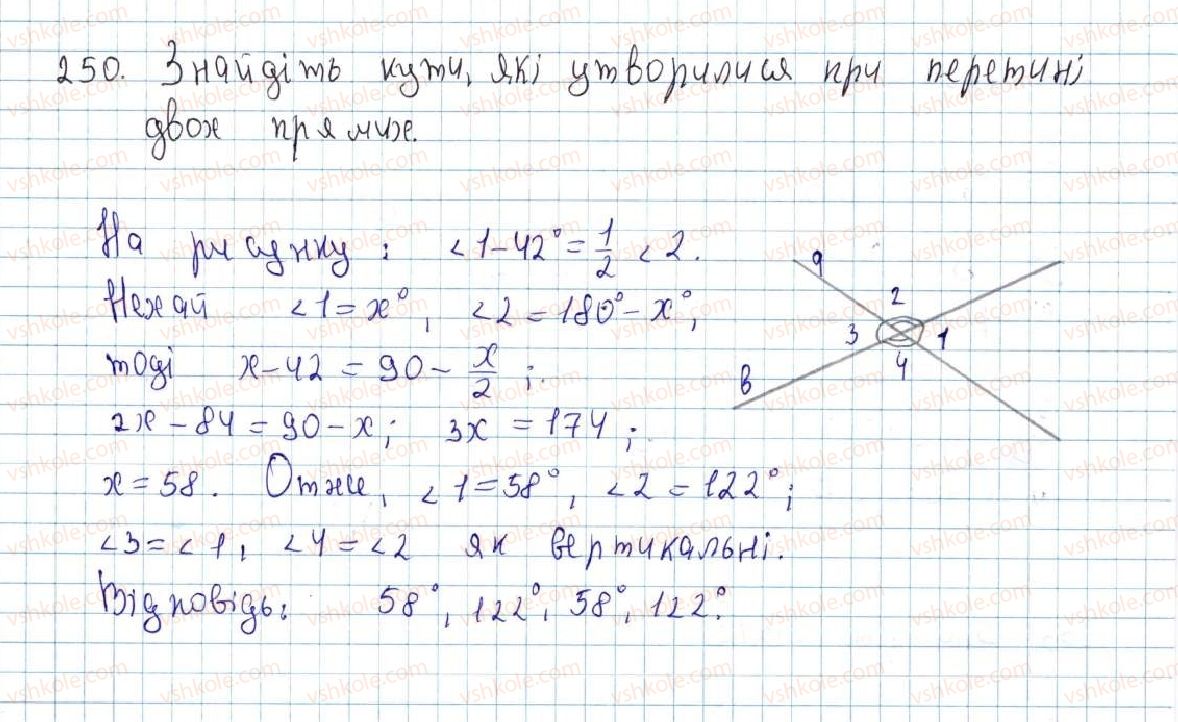 250. Знайдіть кути, які утворилися при перетині
двох прямих.
На рисунку: <1-42°=1/2 <2.
Нехай <1=x°, <2=180°-x°,
тоді x-42=90-x/2;.
2x-84=90-x; 3x=174;
x=58. Отже, <1=58°, <2=122°;
<3=<1, <4=<2 як вертикальні.
Відповідь: 58°, 122°, 58°, 122°.
a
2
3 1
4
в
vshkole.com